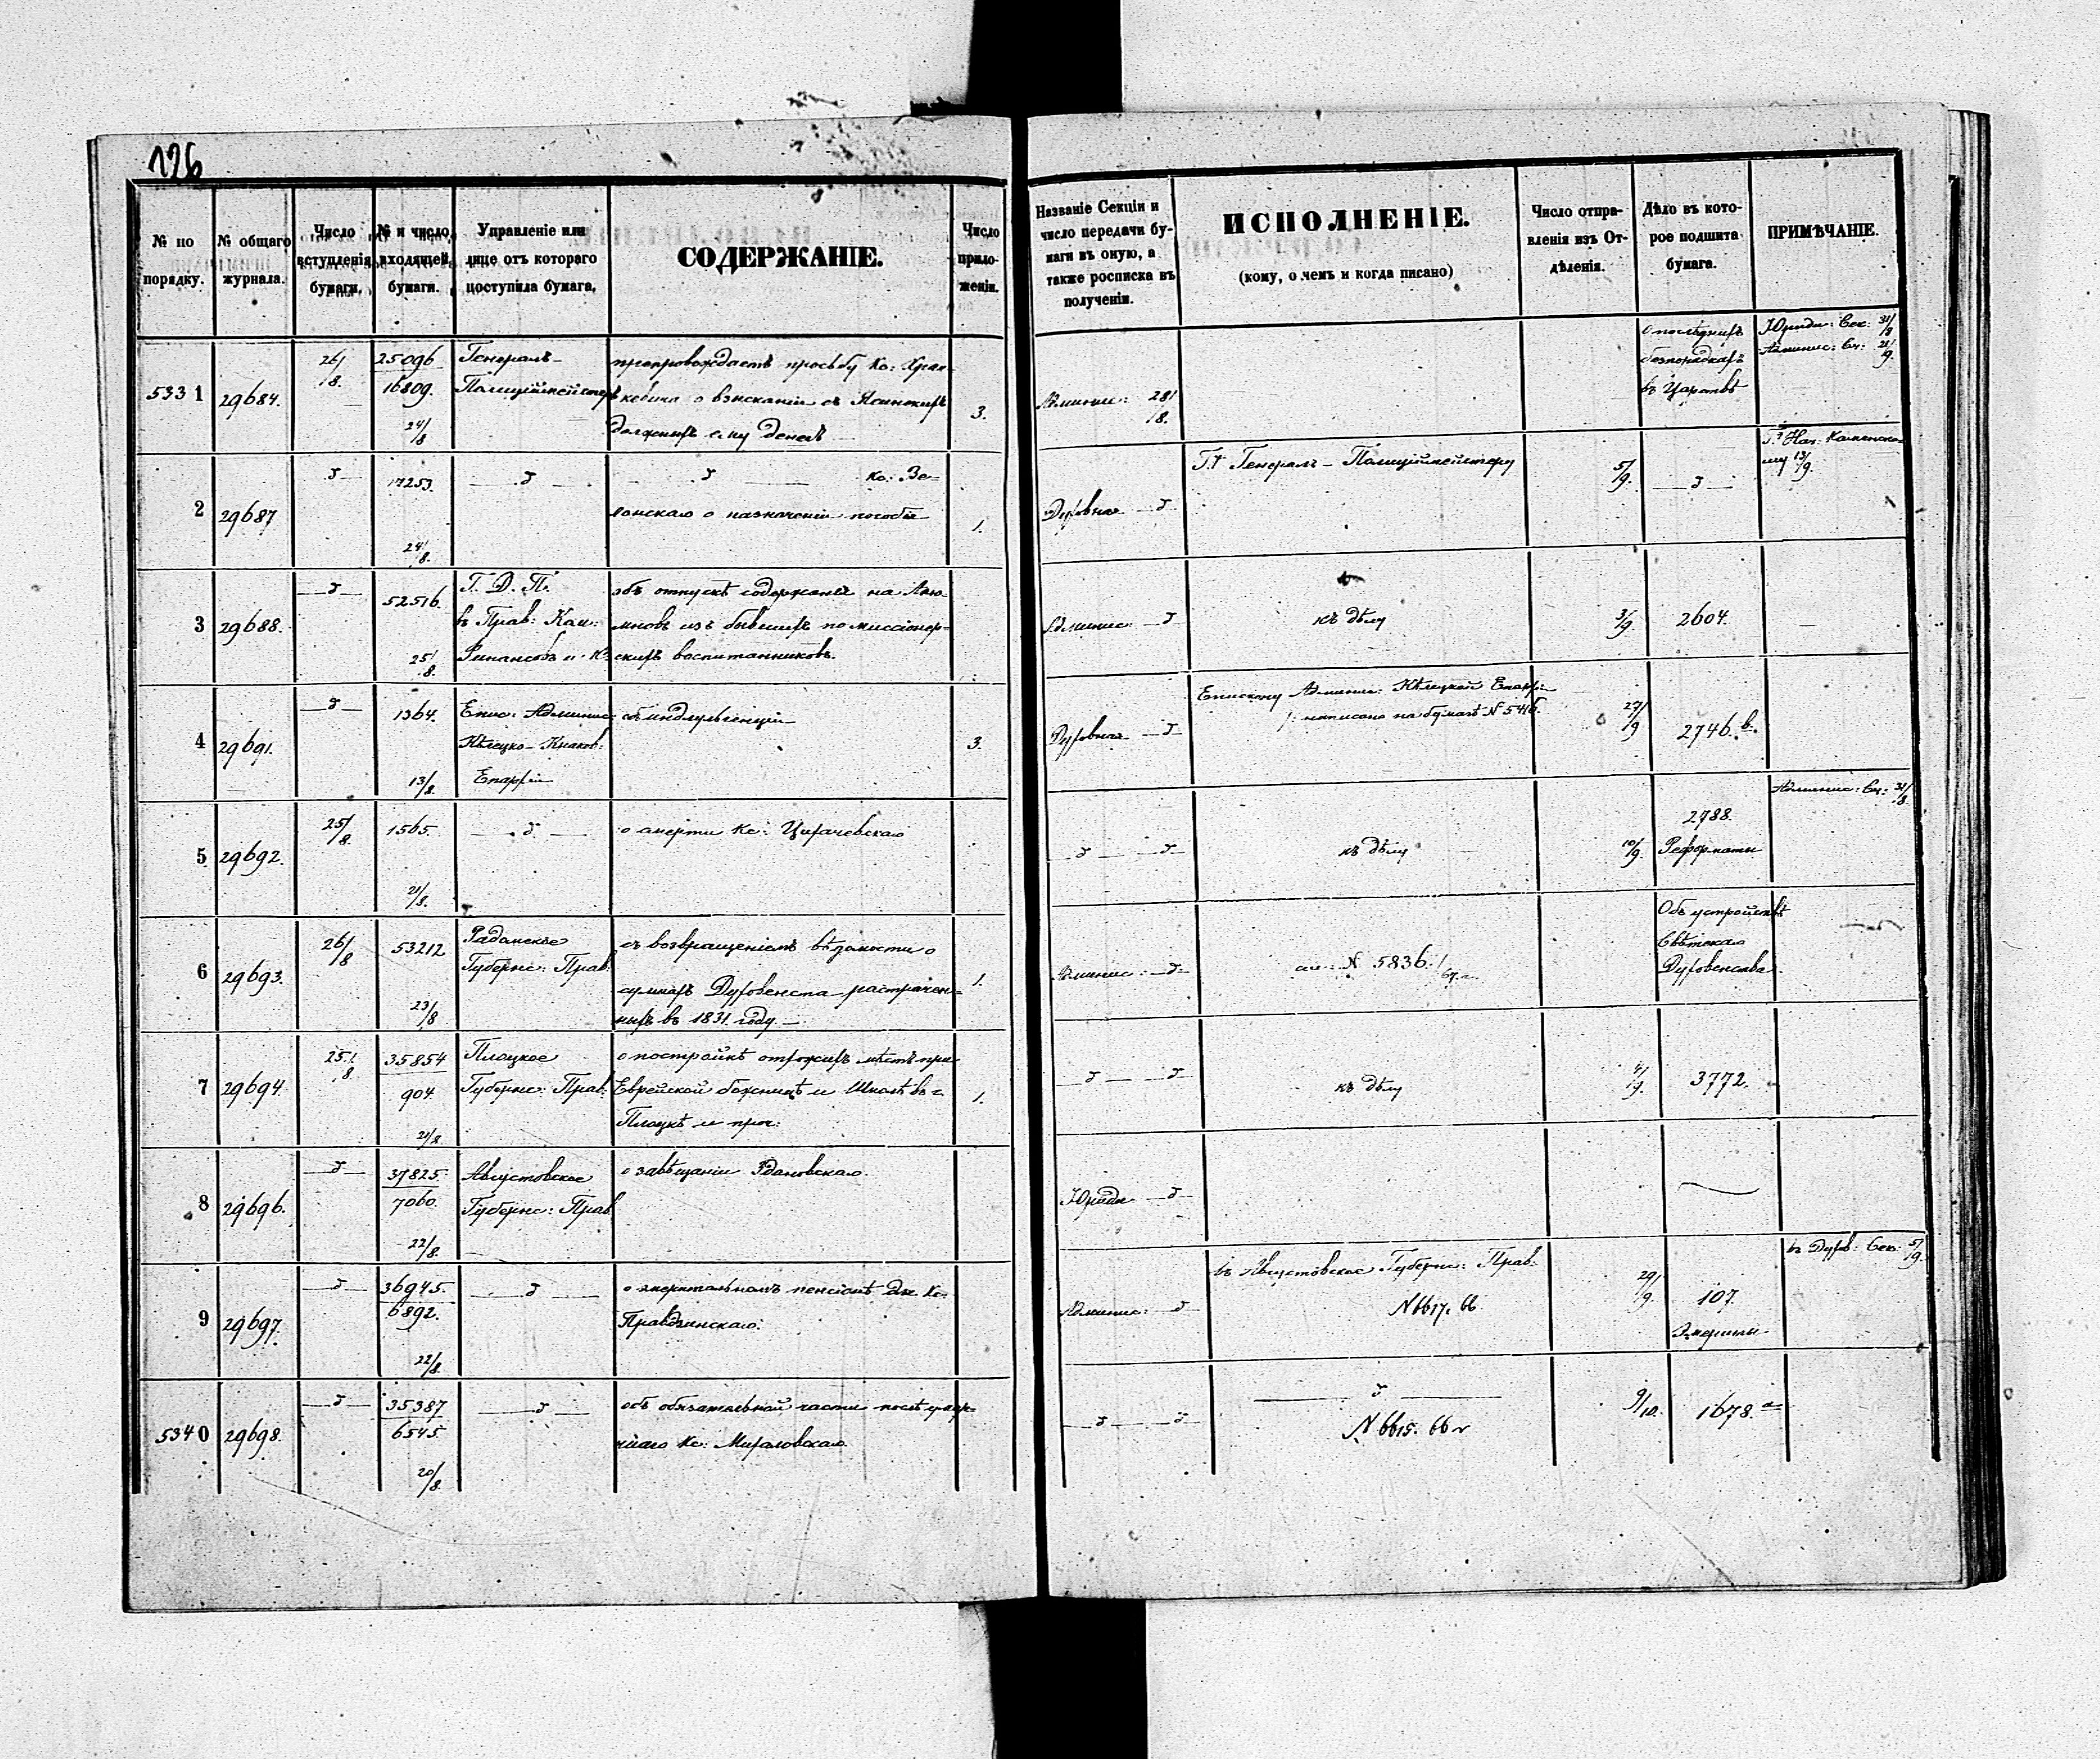 126
№ по порядку.
№ общаго журнала.
Число вступленія бумаги.
№ и число входящей бумаги.
Управленіе или лице отъ котораго поступила бумага.
СОДЕРЖАНІЕ.
Число приложеній.
Названіе Секціи и число передачи бумаги въ оную, а также росписка въ полученіи.
ИСПОЛНЕНІЕ.
(кому, о чемъ и когда писано)
Число отправленія изъ Отдѣленія.
Дѣло въ которое подшита бумага.
ПРИМѢЧАНІЕ.
5331
29684.
26/8.
25096
16809.
24/8
Генералъ-
Полиціймейстеръ
препровождаетъ просьбу Кс:
о взысканіи съ
должныхъ ему денегъ
3.
Админис: 28/8.
о послѣднихъ
безпорядкахъ
въ Царствѣ
Юриди: Сек: 31/8
Админис: Сек: 21/9.
2
29687
17253.
24/8.
Кс: Зе-
лонскаго о назначеніи пособія
1.
Духовная
Г. Генералъ-Полиціймейстеру
5/9.
Нач: Каменско-
му 13/9.
3
29688.
52516.
25/8.
Г. Д. П.
въ Прав: Ком:
Финансовъ и
объ отпускѣ содержанія на Алю-
мновъ изъ бывшихъ по миссіонер-
скихъ воспитанниковъ.
Админис:
къ дѣлу
3/9.
2604.
4
29691.
1364.
13/8.
Епис: Админис:
Кѣлецко-Краков:
Епархіи
объ индульгенціи
3.
Духовная
Епископу Админис: Кѣлецкой Епархіи
написано на бумагѣ N 5416.
27/9
2746. в.
5
29692.
25/8.
1565.
21/8.
о смерти Кс: Цихачевскаго
къ дѣлу
10/9.
2788.
Реформаты
Админис: Сек: 31/8
6
29693.
26/8
53212
23/8
Радомское
Губернс: Прав:
съ возвращеніемъ вѣдомости о
суммахъ Духовенства растрачен-
ныхъ въ 1831 году.
1.
Админис:
N 5836.
Объ устройствѣ
Свѣтскаго
Духовенства
7
29694.
25/8.
35854
904.
21/8
Плоцкое
Губернс: Прав:
о постройкѣ отхожихъ мѣстъ при
Еврейской божницѣ и Школѣ въ г.
Плоцкѣ и проч:
1.
къ дѣлу
4/9.
3772.
8
29696.
37825.
7060.
22/8.
Августовское
Губернс: Прав
о завѣщаніи Ждановскаго.
Юриди
9
29697.
36945.
6892.
22/8.
о эмеритальномъ пенсіонѣ для Кс:
Правдзинскаго.
Админис:
въ Августовское Губернс: Прав:
N 6617. 66
29/9.
107.
Эмериты
въ Духов: Сек: 5/9.
5340
29698.
35387
6545.
20/8.
объ обязательной части послѣ умер-
шаго Кс: Михаловскаго
N 6615. 66
9/10.
1678.